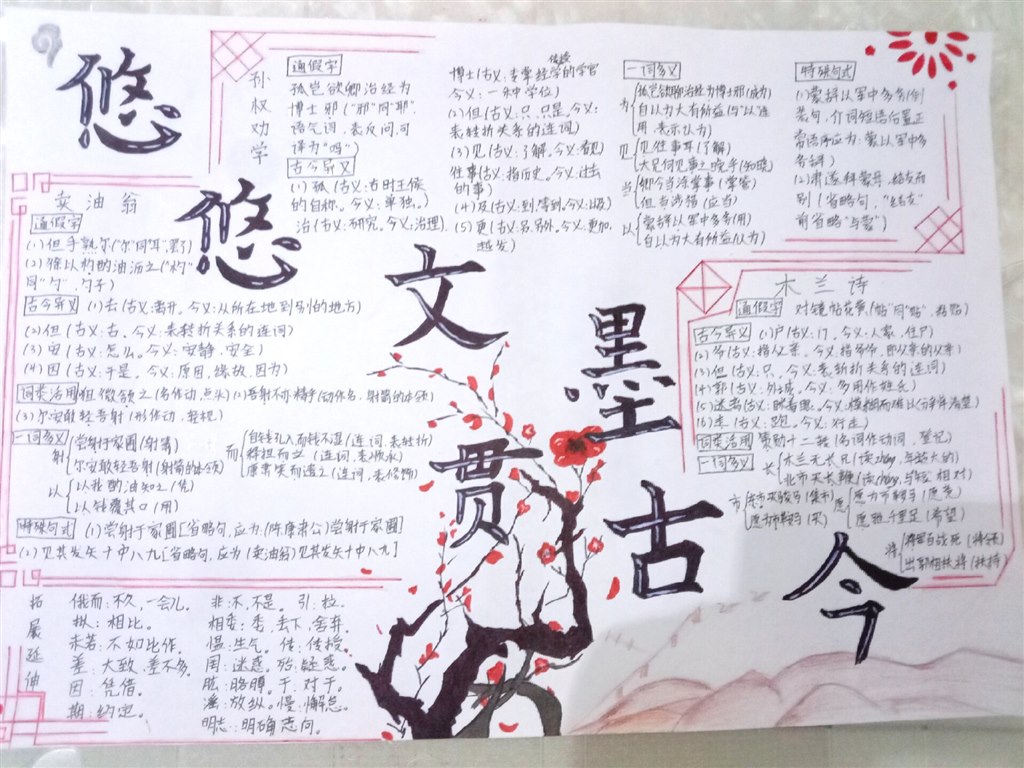 悠悠文墨贯古今
孙权劝学
通假字
孤岂欲卿治经为
博士邪("邪"同"耶",
语气词,表反问,可
译为"吗"
古今异义
(1)孤(古义:古时王侯
的自称。今义:单独。)
治(古义:研究,今义:治理)
博士(古义:专掌经学传授的学官
今义:一种学位)
(2)但(古义:只,只是。今义:
表转折关系的连词)
(3)见(古义:了解。今义:看见)
往事(古义:指历史。今义:过去
的事)
(4)及(古义:到,等到。今义:以及)
(5)更(古义:另,另外。今义:更加,
越发)
一词多义
为
孤岂欲卿治经为博士邪(成为)
自以为大有所益(与"以"连
用,表示认为)
见
见往事耳(了解)
大兄何见事之晚乎(知晓)
当
卿今当涂掌事(掌管)
但当涉猎(应当)
以
蒙辞以军中多务(用)
自以为大有所益(认为)
特殊句式
(1)蒙辞以军中多务(倒
装句,介词短语后置正
常语序应为:蒙以军中多
务辞)
(2)肃遂拜蒙母,结友而
别(省略句,"结友"
前省略"与蒙")
卖油翁
通假字
(1)但手熟尔("尔"同"耳",罢了)
(2)徐以杓酌油沥之("杓"
同"勺",勺子)
古今异义
(1)去(古义:离开。今义:从所在地到别的地方)
(2)但(古义:只。今义:表转折关系的连词)
(3)安(古义:怎么。今义:安静,安全)
(4)因(古义:于是。今义:原因,缘故,因为)
词类活用
但微颔之(名作动,点头)
(2)吾射不亦精乎(动作名,射箭的本领)
(3)尔安敢轻吾射(形作动,轻视)
一词多义
射
尝射于家圃(射箭)
尔安敢轻吾射(射箭的本领)
以
以我酌油知之(凭)
以钱覆其口(用)
而
自钱孔入而钱不湿(连词,表转折)
释担而立(连词,表顺承)
康肃笑而遣之(连词,表修饰)
特殊句式
(1)尝射于家圃[省略句,应为:(陈康肃公)尝射于家圃]
(2)见其发矢十中八九[省略句,应为:(卖油翁)见其发矢十中八九]
木兰诗
通假字
对镜帖花黄("帖"同"贴",粘贴)
古今异义
(1)户(古义:门。今义:人家,住户)
(2)爷(古义:指父亲。今义:指爷爷,即父亲的父亲)
(3)但(古义:只。今义:表转折关系的连词)
(4)郭(古义:外城。今义:多用作姓氏)
(5)迷离(古义:眯着眼。今义:模糊而难以分辨清楚)
(6)走(古义:跑。今义:行走)
词类活用
策勋十二转(名词作动词,登记)
一词多义
长
木兰无长兄(读zhǎng,年龄大的)
北市买长鞭(读cháng,与"短"相对)
市
东市买骏马(集市)
愿为市鞍马(买)
愿
愿为市鞍马(愿意)
愿驰千里足(希望)
将
将军百战死(将领)
出郭相扶将(扶持)
拓展延伸
俄而:不久,一会儿。
拟:相比。
未若:不如比作。
差:大致,差不多。
因:凭借。
期:约定。
非:不,不是。引:拉。
相委:委,丢下,舍弃。
愠:生气。传:传授。
罔:迷惑。殆:疑惑。
肱:胳膊。于:对于。
淫:放纵。慢:懈怠。
明志:明确志向。